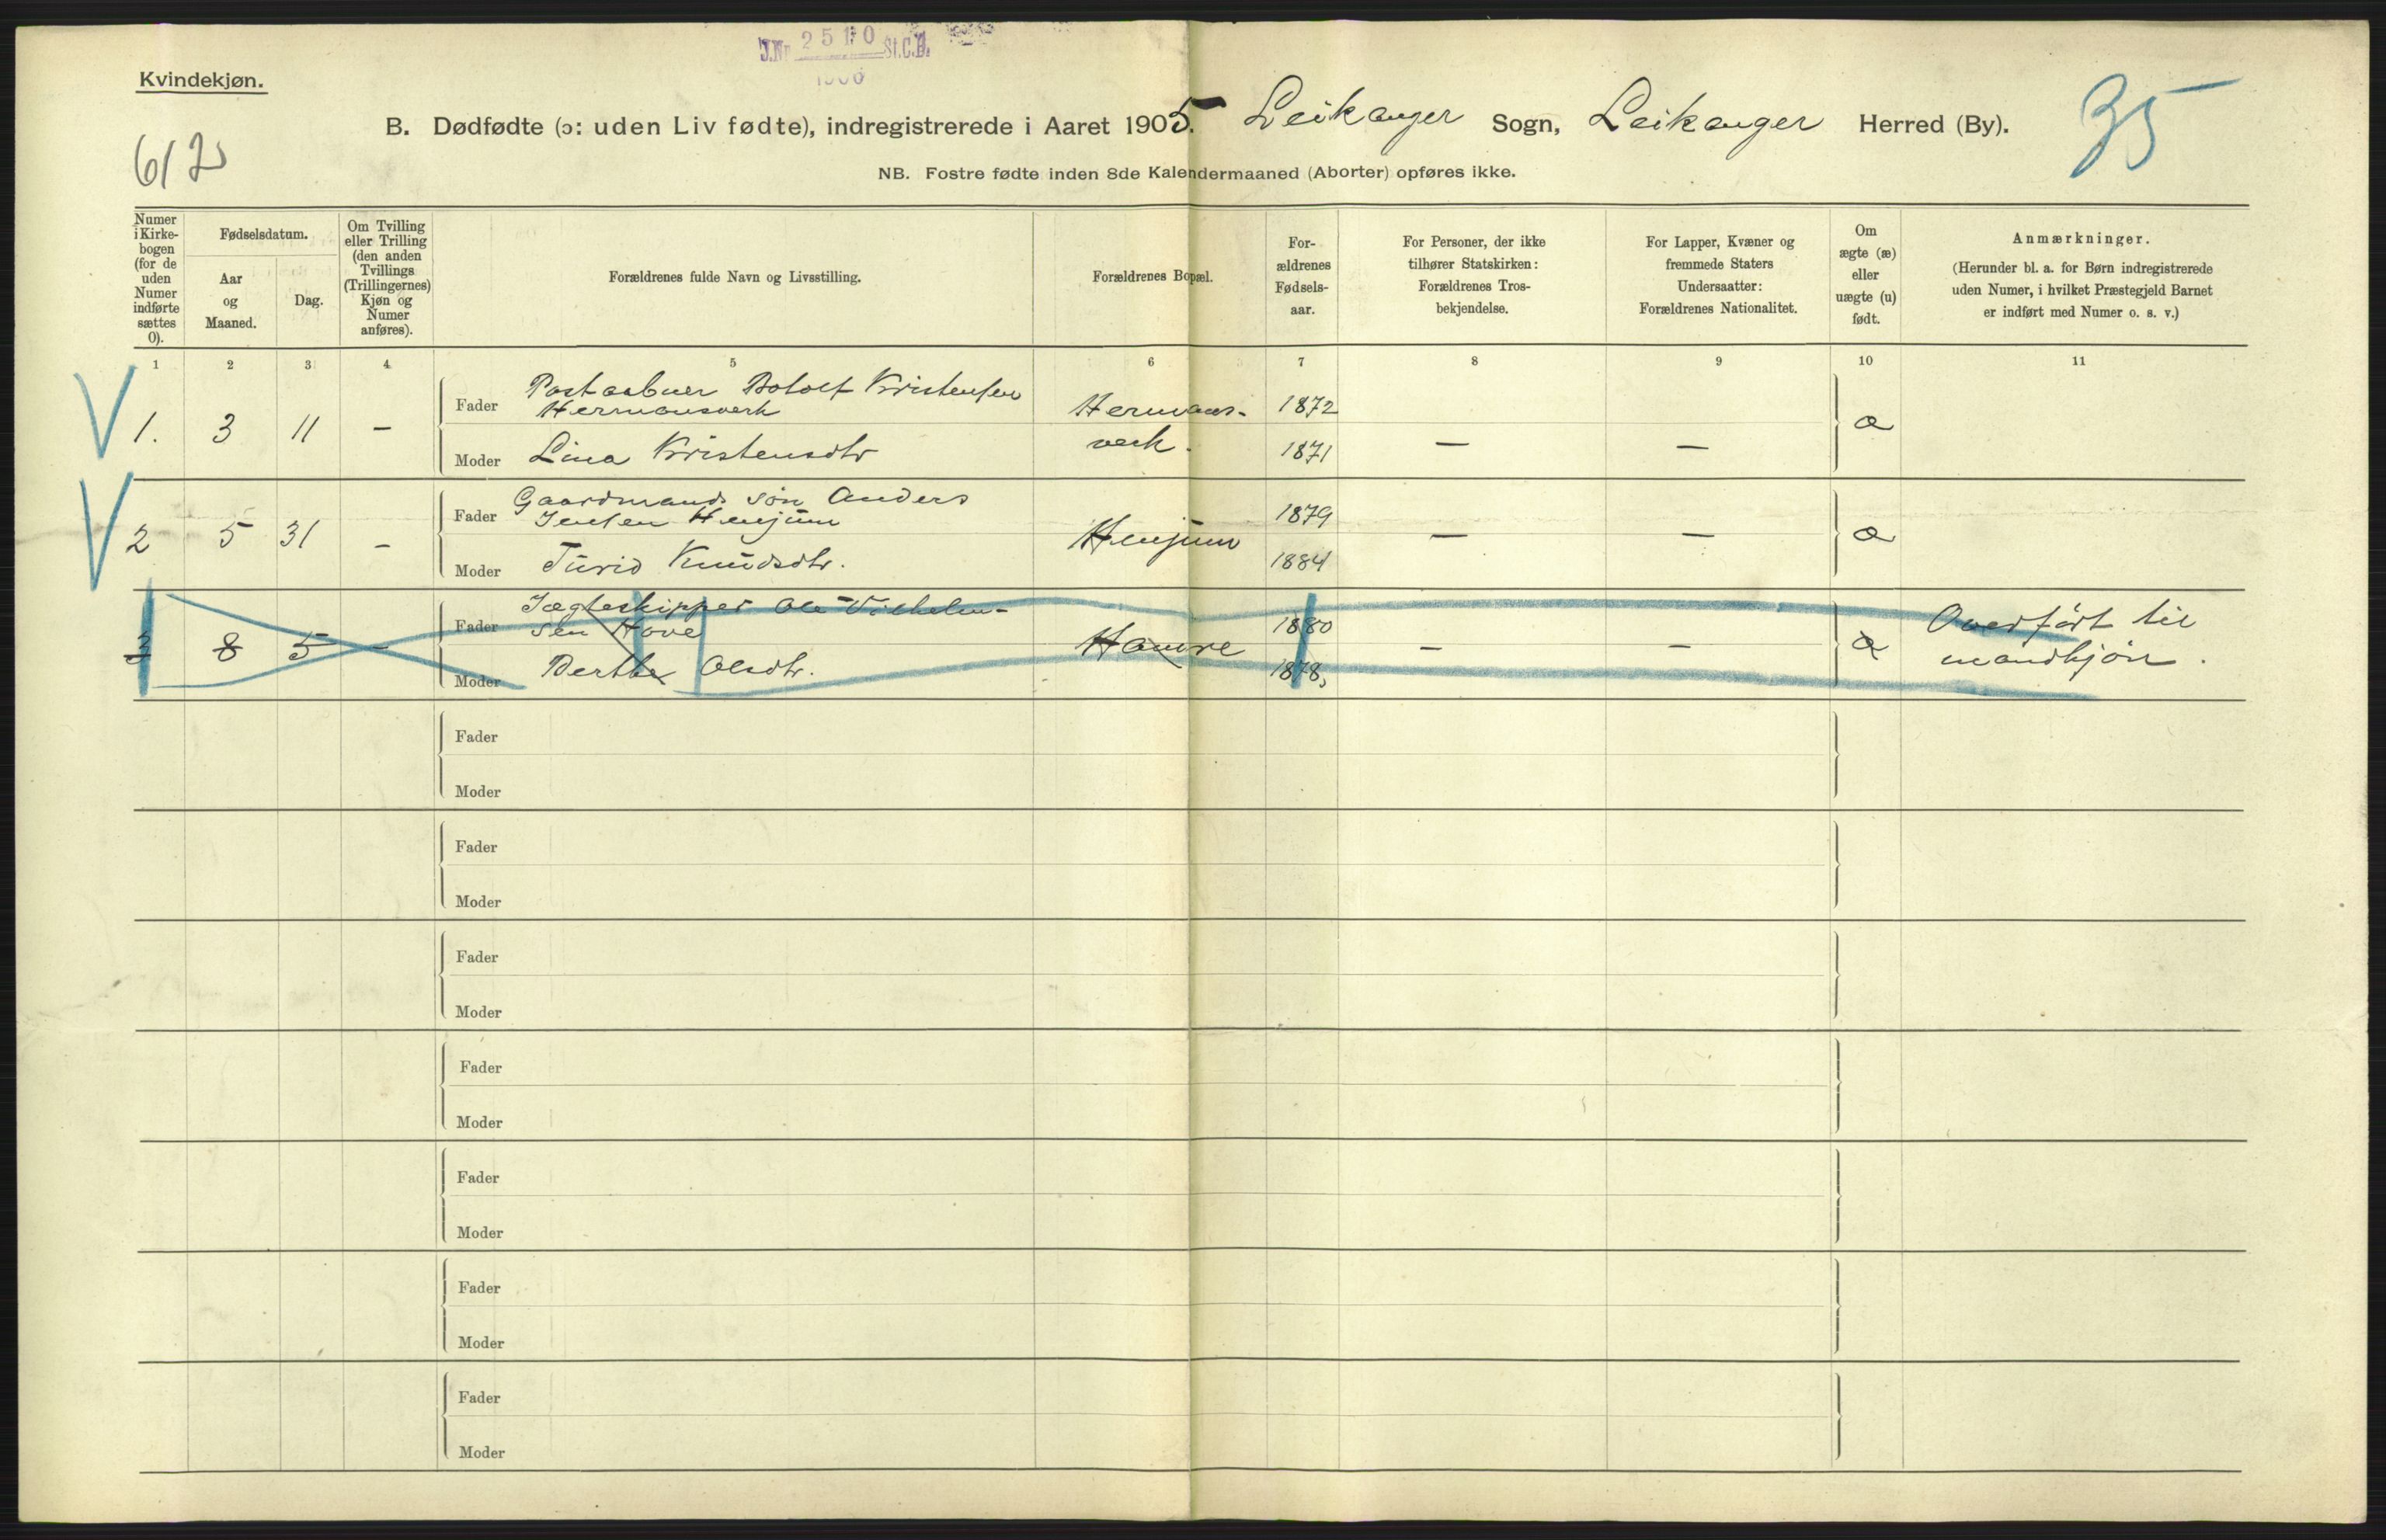 J.Nr. 2510 St.C.B.
1906
Kvindekjøn.
612
B. Dødfødte (ɔ: uden Liv fødte), indregistrerede i Aaret 1905. Leikanger Sogn, Leikanger Herred (By).
35
NB. Fostre fødte inden 8de Kalendermaaned (Aborter) opføres ikke.
Numer
i Kirke-
bogen
(for de
uden
Numer
indførte
sættes
0).
Fødselsdatum.
Aar
og
Maaned.
Dag.
Om Tvilling
eller Trilling
(den anden
Tvillings
(Trillingernes)
Kjøn og
Numer
anføres).
Forældrenes fulde Navn og Livsstilling.
Forældrenes Bopæl.
For-
ældrenes
Fødsels-
aar.
For Personer, der ikke
tilhører Statskirken:
Forældrenes Tros-
bekjendelse.
For Lapper, Kvæner og
fremmede Staters
Undersaatter:
Forældrenes Nationalitet.
Om
ægte (æ)
eller
uægte (u)
født.
Anmærkninger.
(Herunder bl. a. for Børn indregistrerede
uden Numer, i hvilket Præstegjeld Barnet
er indført med Numer o. s. v.)
1 2 3 4 5 6 7 8 9 10 11
V
1. 3 11 –
Fader Postaabner Botolf Kristensen
Hermansverk
Hermans-
verk.
1872
Moder Lina Kristensdtr 1871 – – æ
V
2 5 31 –
Fader Gaardmands søn Anders
Jensen Henjum
Henjum 1879
Moder Turid Knudsdtr. 1884 – – æ
3 8 5 –
Fader Jægteskipper Ole Vilhelm-
sen Hove
Hamre 1880
Moder Berthe Olsdtr. 1878, – – æ
Overført til
mandkjøn.
Fader
Moder
Fader
Moder
Fader
Moder
Fader
Moder
Fader
Moder
Fader
Moder
Fader
Moder